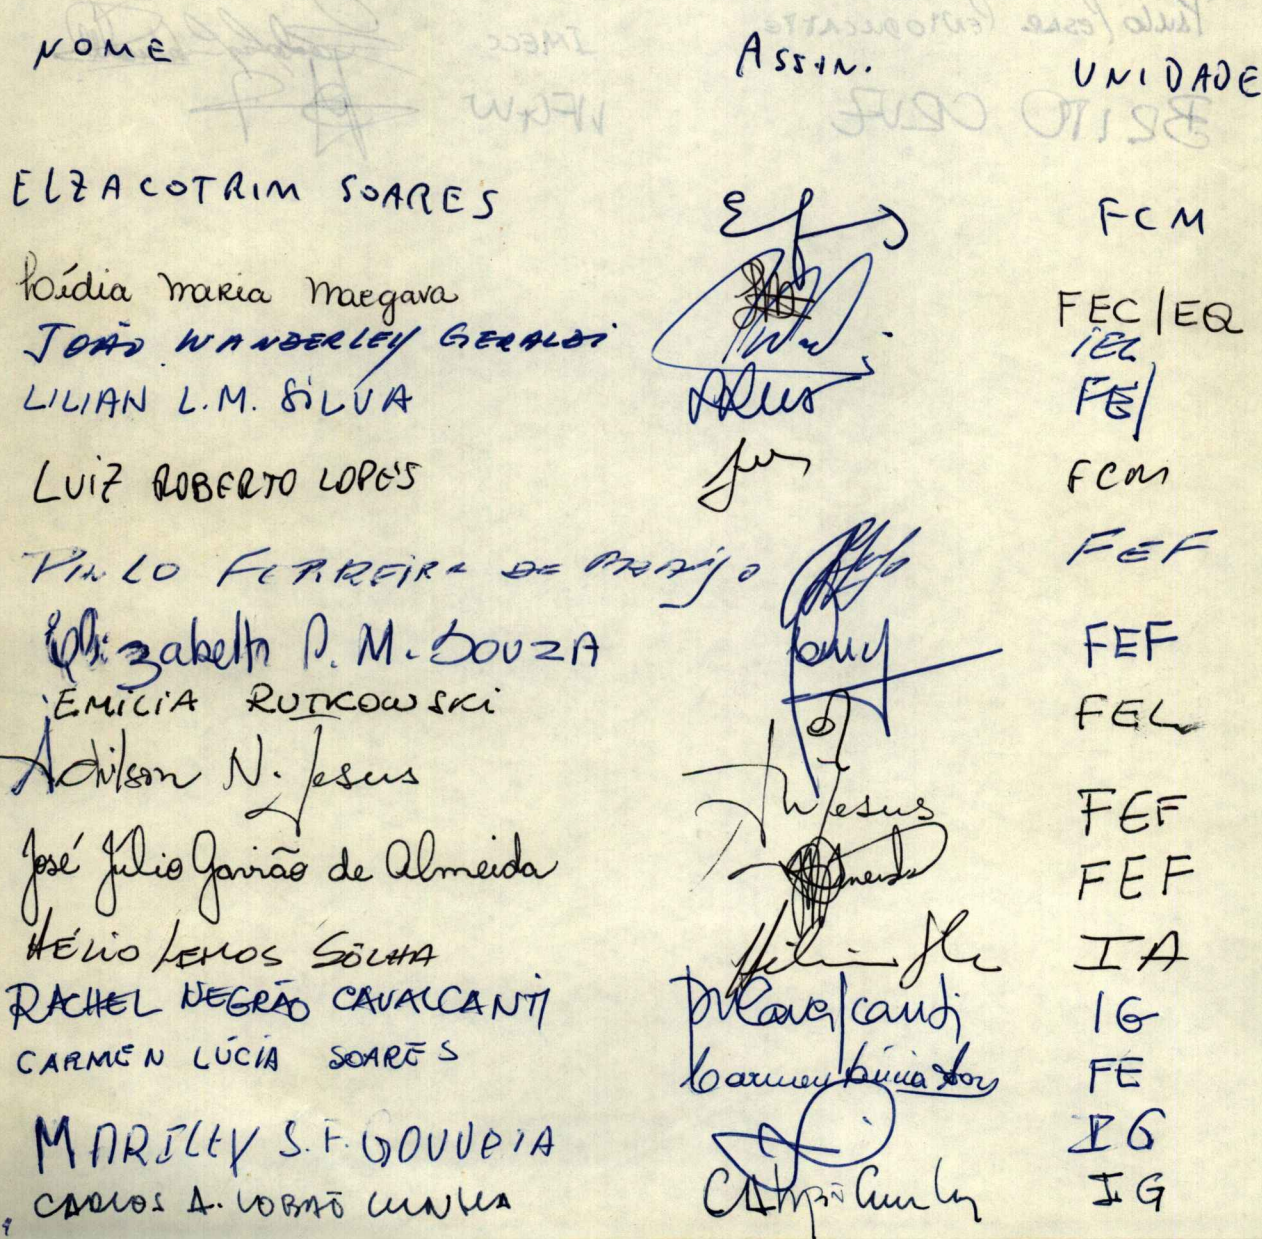 NOME ASSIN. UNIDADE
ELZA COTRIM SOARES FCM
Lídia Maria Maegava FEC/EQ
JOÃO WANDERLEY GERALDI IEL
LILIAN L.M. SILVA FE
LUIZ ROBERTO LOPES FCM
PAULO FERREIRA DE ARAÚJO FEF
Elizabeth P. M. SOUZA FEF
EMÍLIA RUTKOWSKI FEC
Adilson N. Jesus Jesus FEF
José Júlio Gavião de Almeida Almeida FEF
HÉLIO LEMOS SÔLHA Hélio IA
RACHEL NEGRÃO CAVALCANTI RCavalcanti IG
CARMEN LÚCIA SOARES Carmen Lúcia Soares FE
MARILEY S.F. GOUVEIA IG
CARLOS A. LOBÃO CUNHA CALobão Cunha IG